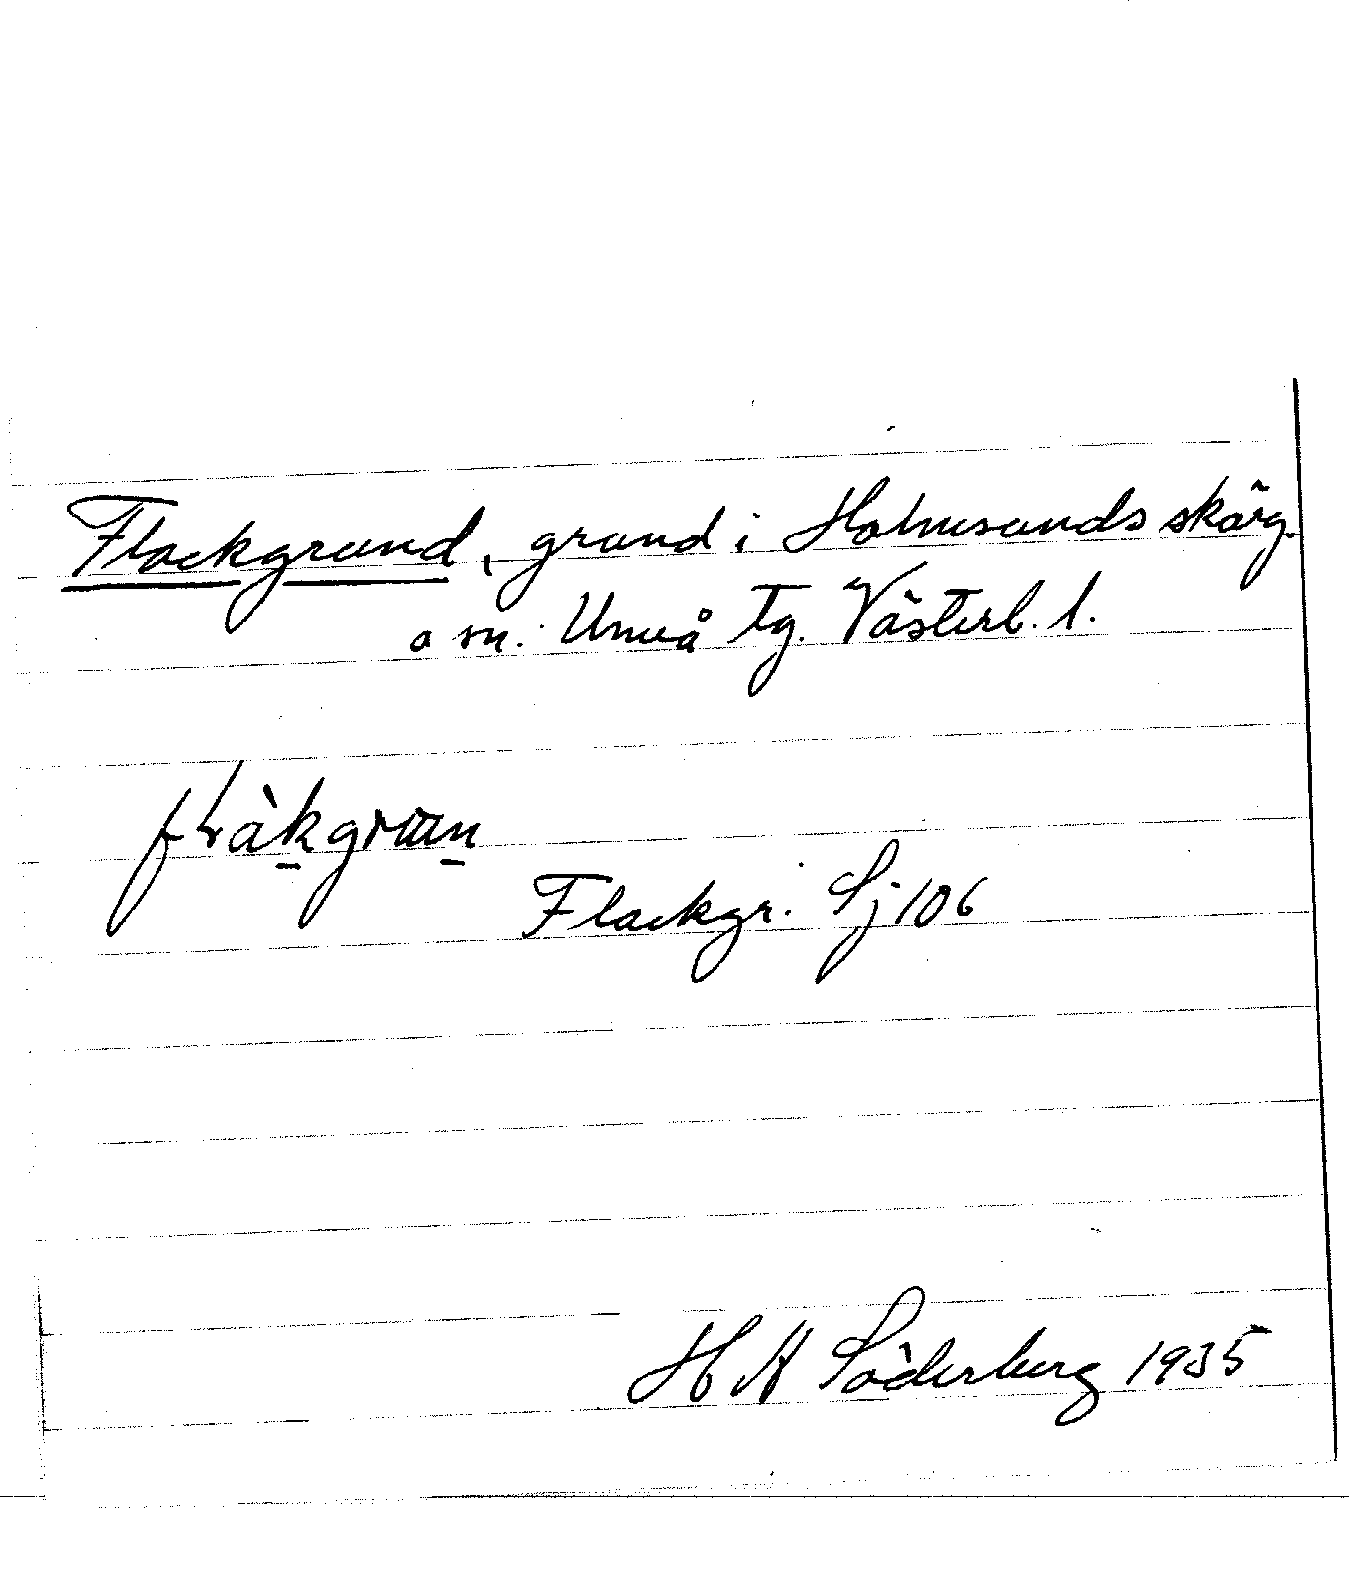 Flackgrund, grund i Holmsunds skärg.
o sn. Umeå tg. Västerb. l.
Flackgr. Sj 106
H A Söderberg 1935